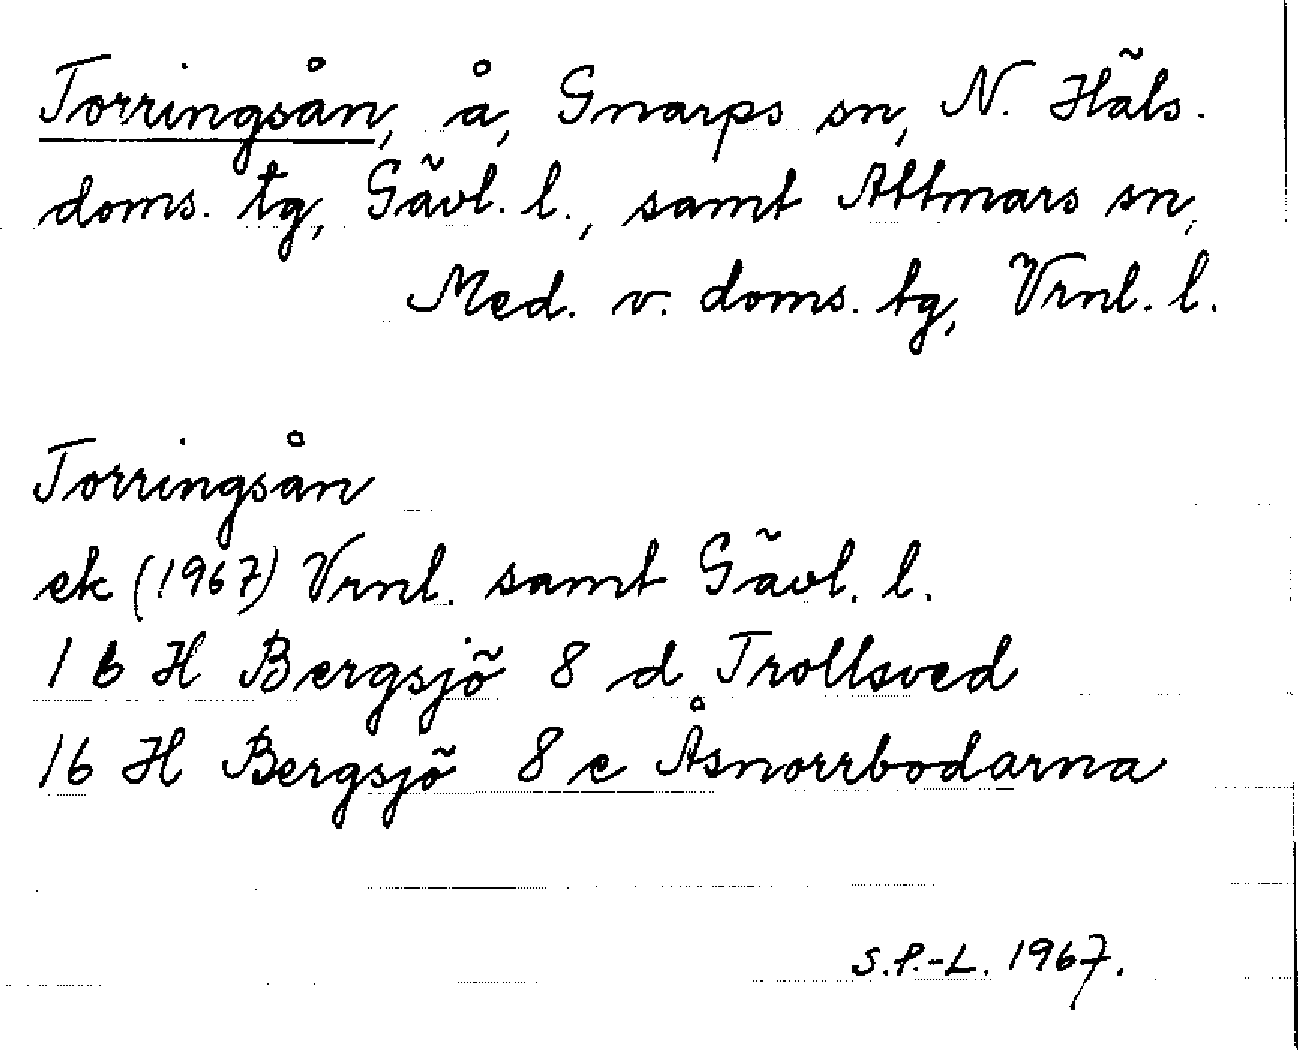 Torringsån, å, Gnarps sn, N. Häls.
doms. tg, Gävl. l., samt Attmars sn,
Med. v. doms. tg, Vrnl. l.
Torringsån
ek (1967) Vrnl. samt Gävl. l.
16 H Bergsjö 8 d Trollsved
16 H Bergsjö 8 e Åsnorrbodarna
S.P.-L. 1967.